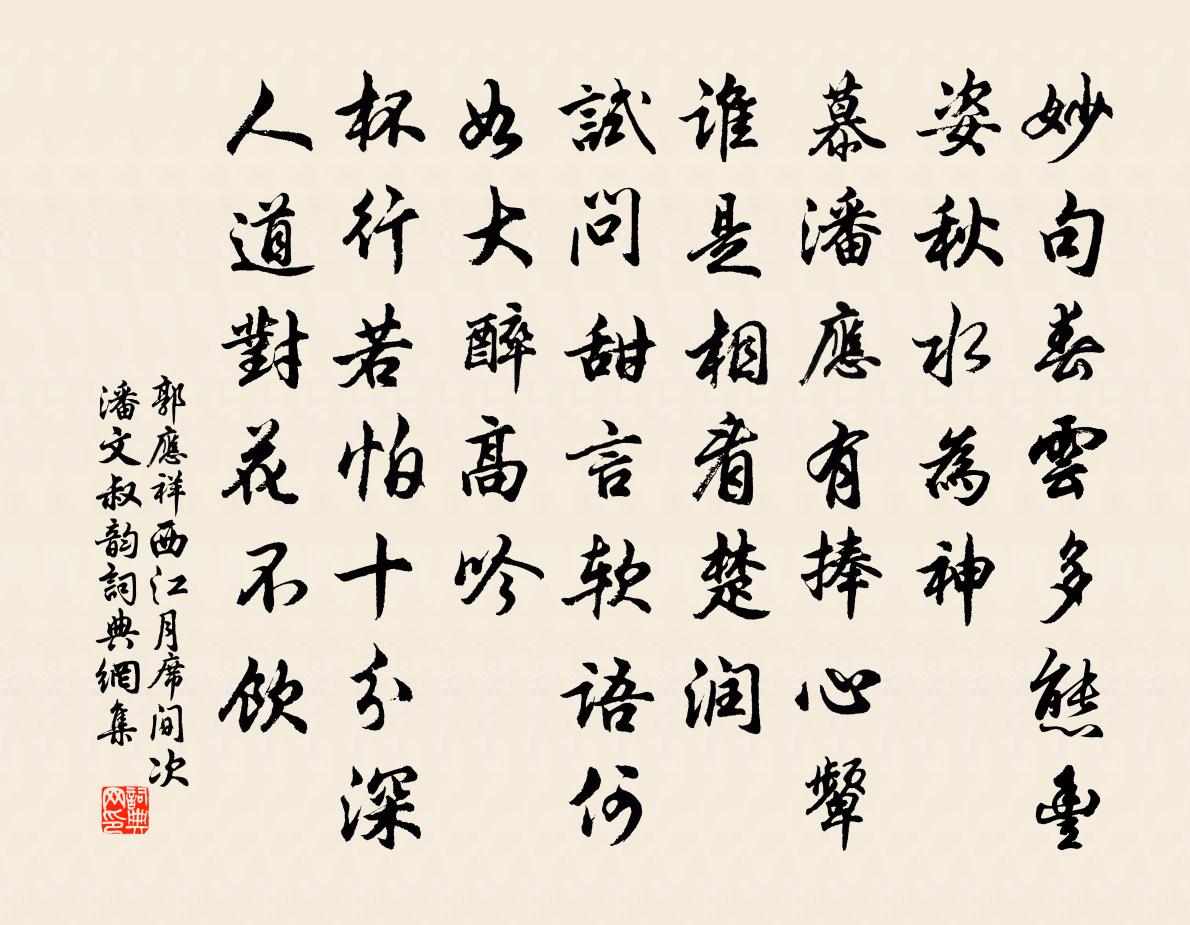 妙句春雲多態豐
姿秋水為神
慕潘應有捧心顰
谁是相看楚润
試问甜言软语何
如大醉高吟
杯行若怕十分深
人道對花不飲
郭應祥西江月席间次
潘文叔韵詞典網集
詞典
网印